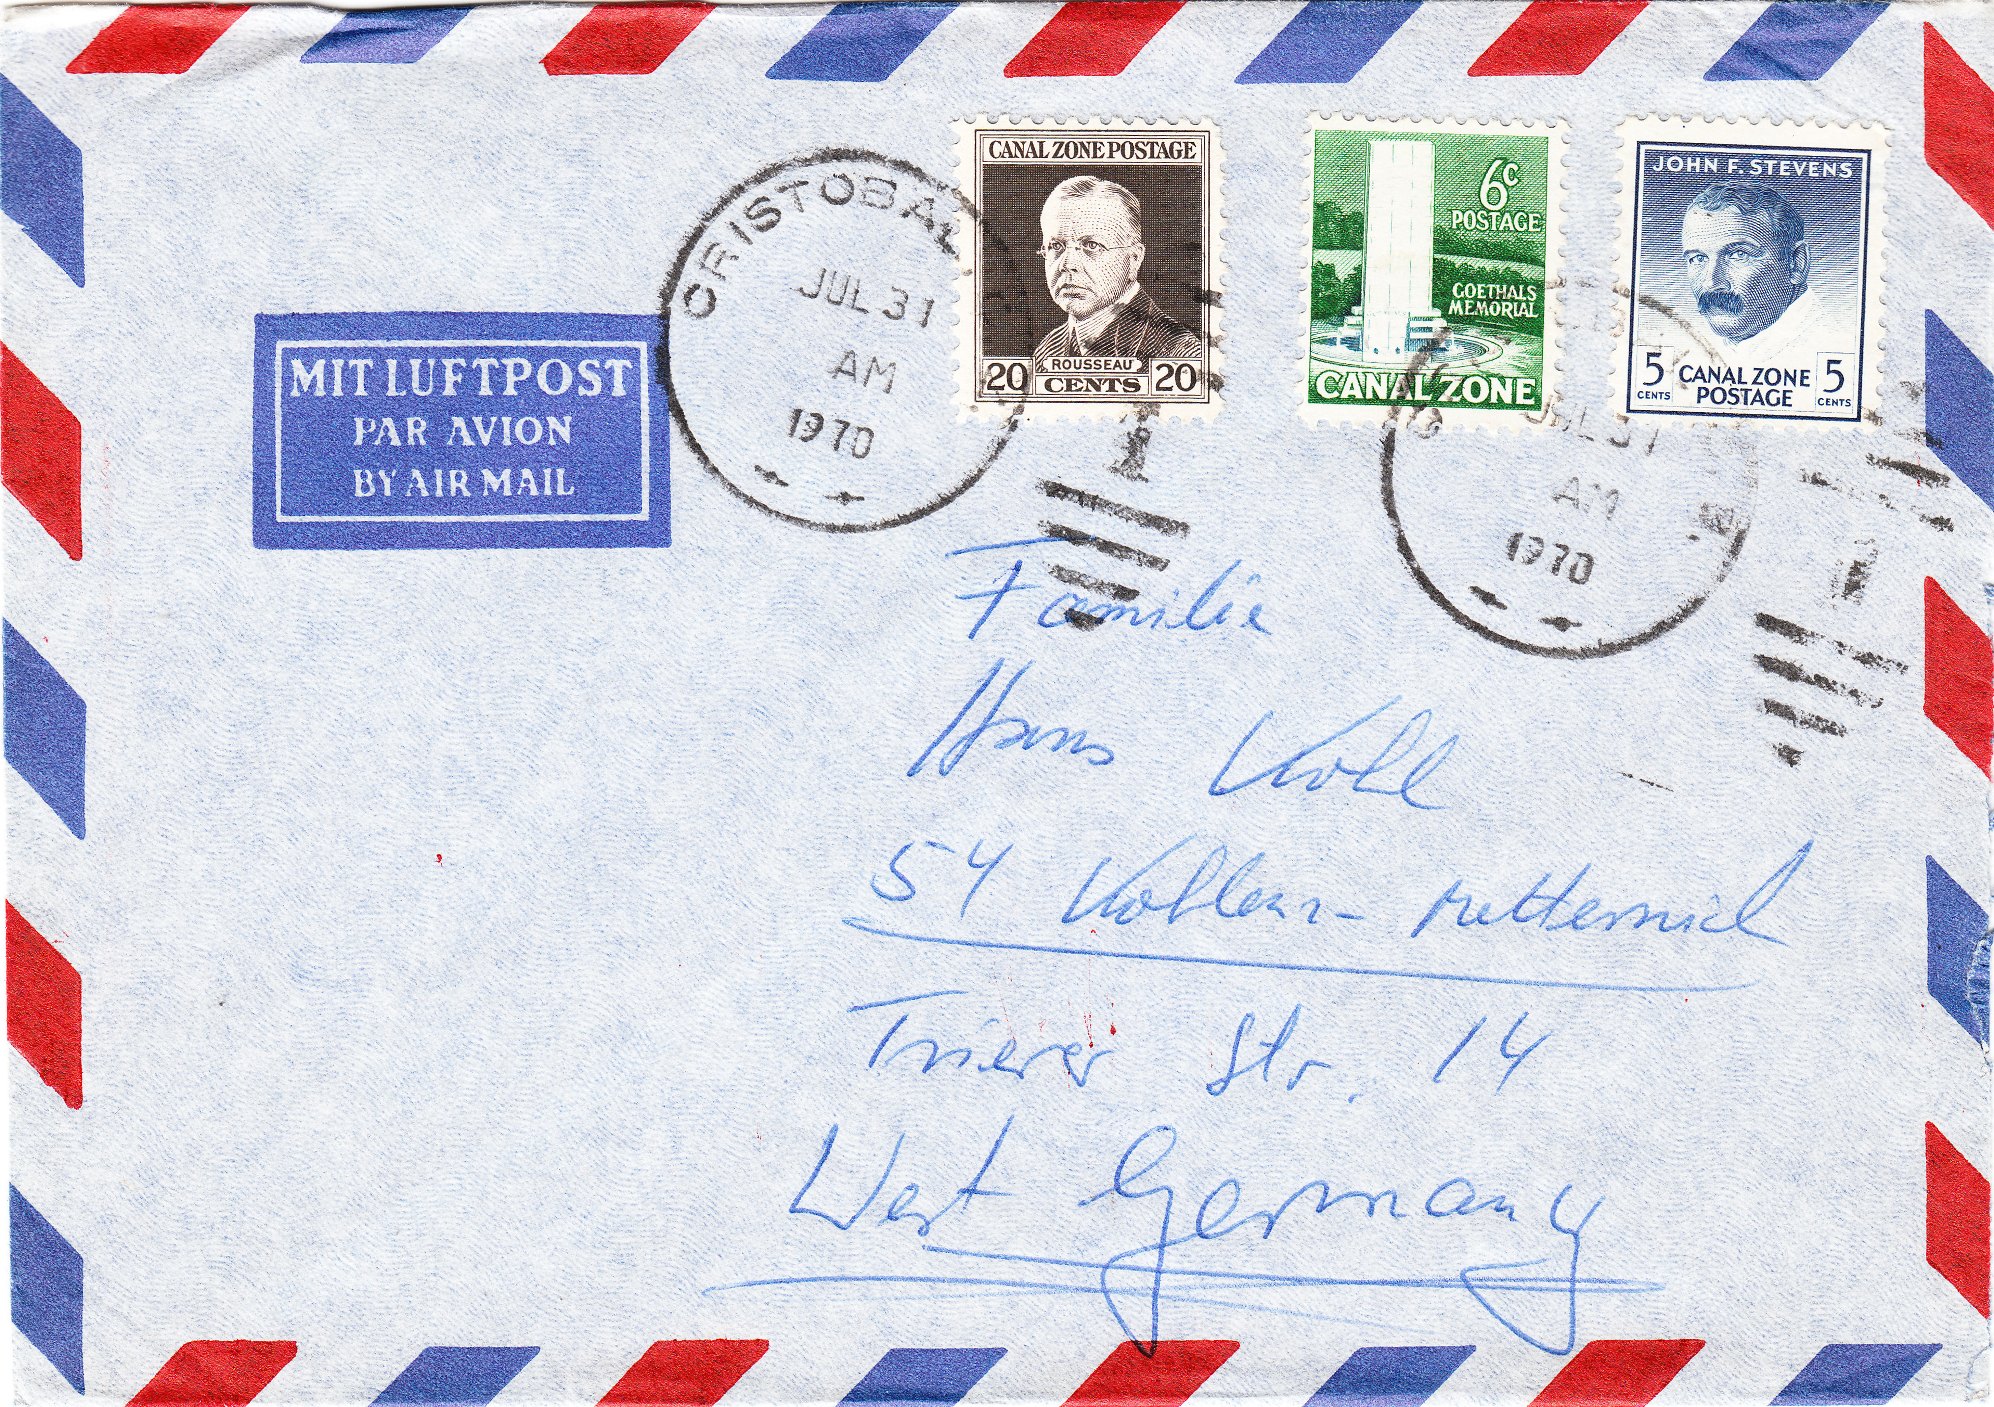 CRISTOBAL
JUL 31
AM
1970
CANAL ZONE POSTAGE
ROUSSEAU
20 CENTS 20
6c
POSTAGE
GOETHALS
MEMORIAL
CANAL ZONE
JOHN F. STEVENS
5 CANAL ZONE 5
CENTS POSTAGE CENTS
JUL 31
AM
1970
1
MIT LUFTPOST
PAR AVION
BY AIR MAIL
Familie
Hans Kohl
54 Koblenz - Metternich
Trierer Str. 14
West Germany